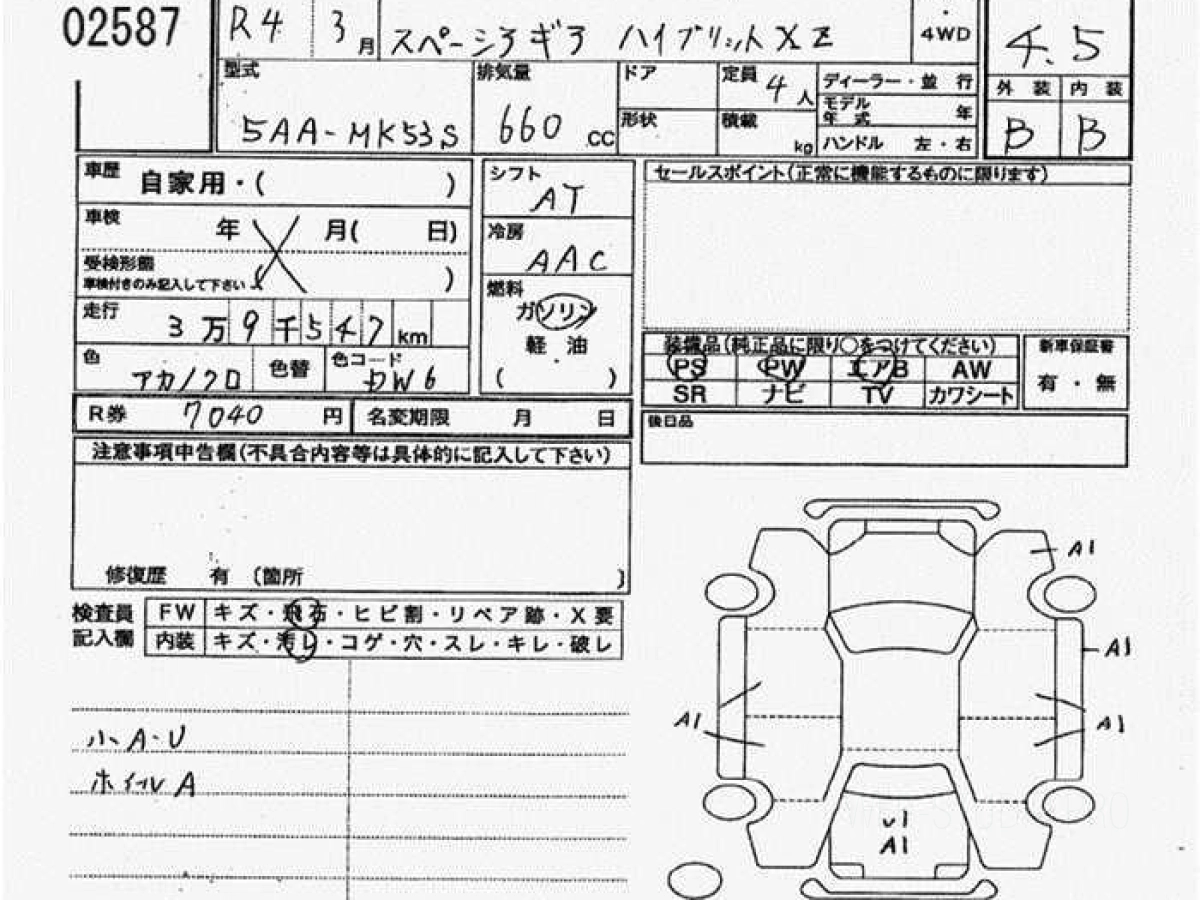 02587
R4 3月 スペーシアギア ハイブリットXZ ・4WD 4.5
型式 5AA-MK53S
排気量 660 cc
ドア
形状
定員 4人
積載 kg
ディーラー・並行
モデル年式 年
ハンドル 左・右
外装 内装
B B
車歴 自家用・( )
車検 年 月( 日)
受検形態
車検付きのみ記入して下さい ( )
走行 3万9千547km
色 アカ/クロ 色替 色コード DW6
シフト AT
冷房 AAC
燃料
ガソリン
軽・油
( )
セールスポイント(正常に機能するものに限ります)
装備品(純正品に限り○をつけてください)
PS PW エアB AW
SR ナビ TV カワシート
新車保証書
有・無
R券 7040 円 名変期限 月 日
後日品
注意事項申告欄(不具合内容等は具体的に記入して下さい)
修復歴 有 〔箇所 〕
検査員記入欄
FW キズ・飛石・ヒビ割・リペア跡・X要
内装 キズ・汚し・コゲ・穴・スレ・キレ・破レ
小A・U
ホイルA
A1
A1
A1
A1
U1
A1